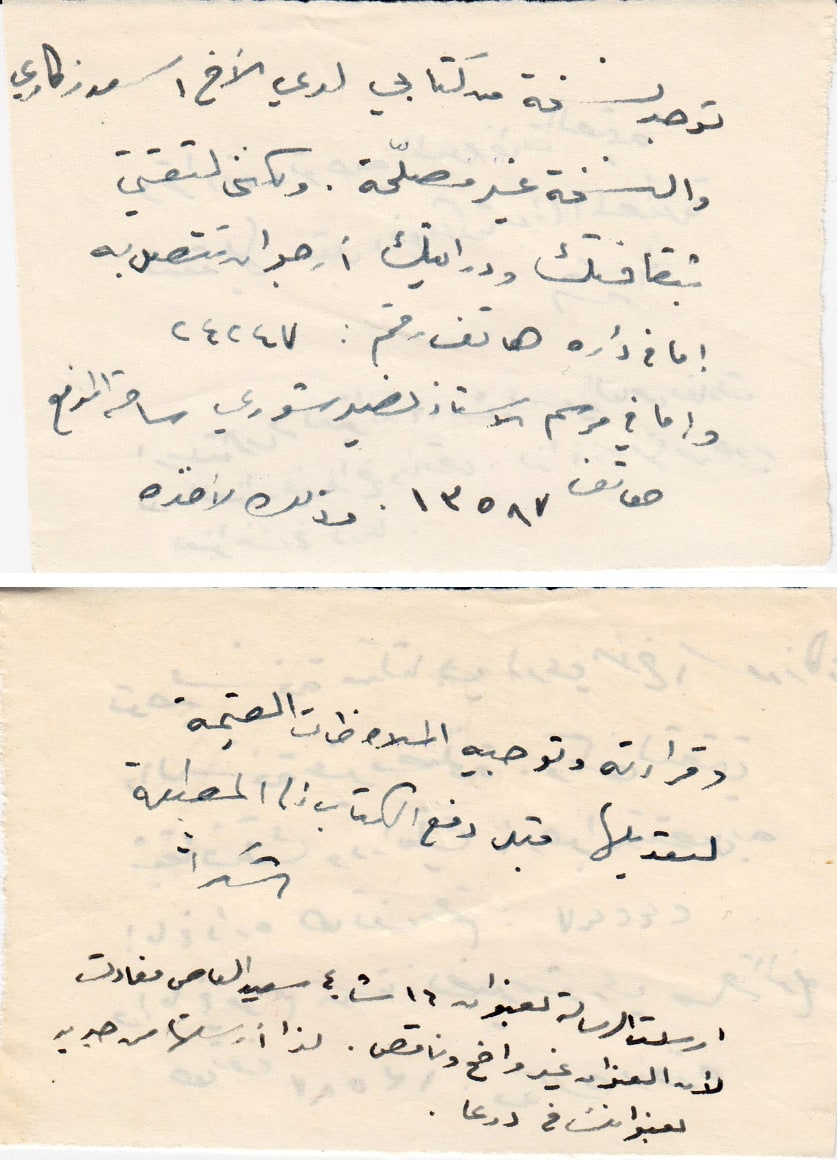 توجد نسخة من كتابي لدى الأخ اسعد زكاري
والنسخة غير مصلّحة . ولكني لثقتي
بثقافتك ودرايتك أرجو ان تتصل به
إما في داره هاتف رقم : ٢٤٢٤٧
وإما في مرسم الاستاذ نصير شورى ساحة المدفع
هاتف ١٣٥٨٧ . وذلك لأخذه
وقراءته وتوجيه الملاحظات القيمة
لتعديلها قبل دفع الكتاب إلى المطبعة
شكراً
ارسلت الرسالة لعنوان ١٦ شا ٤ سعيد العاص فعادت
لأن العنوان غير واضح وناقص . لذا أرسلتها من جديد
لعنوانك في درعا .